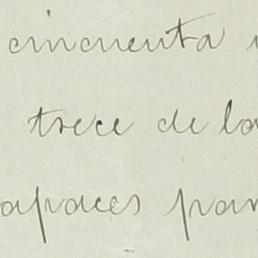 cincuenta
trece de la
apaces par